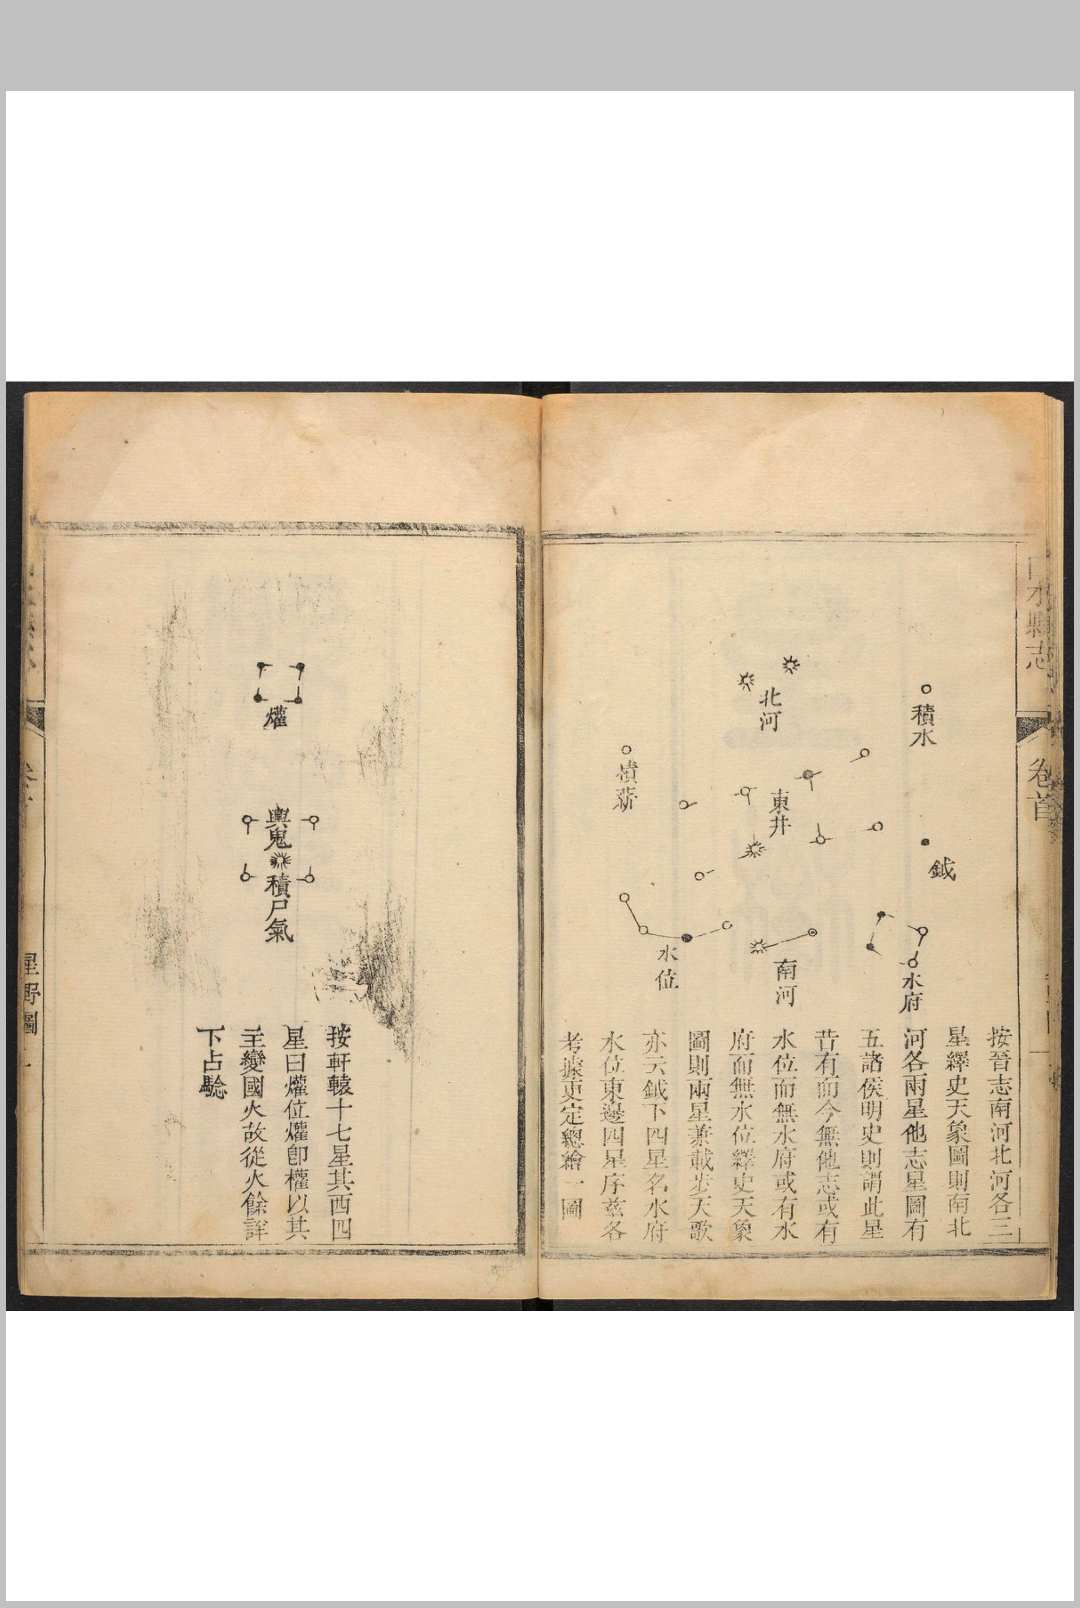 水縣志
卷首
積水
鉞
水府
北河
東井
南河
積薪
水位
按晉志南河北河各三
星繹史天象圖則南北
河各兩星他志星圖有
五諸侯明史則謂此星
昔有而今無他志或有
水位而無水府或有水
府而無水位繹史天象
圖則兩星兼載步天歌
亦云鉞下四星名水府
水位東邊四星序茲各
考據更定總繪一圖
爟
輿鬼
積尸氣
按軒轅十七星其西四
星曰爟位爟卽權以其
主變國火故從火餘詳
下占驗
星野圖